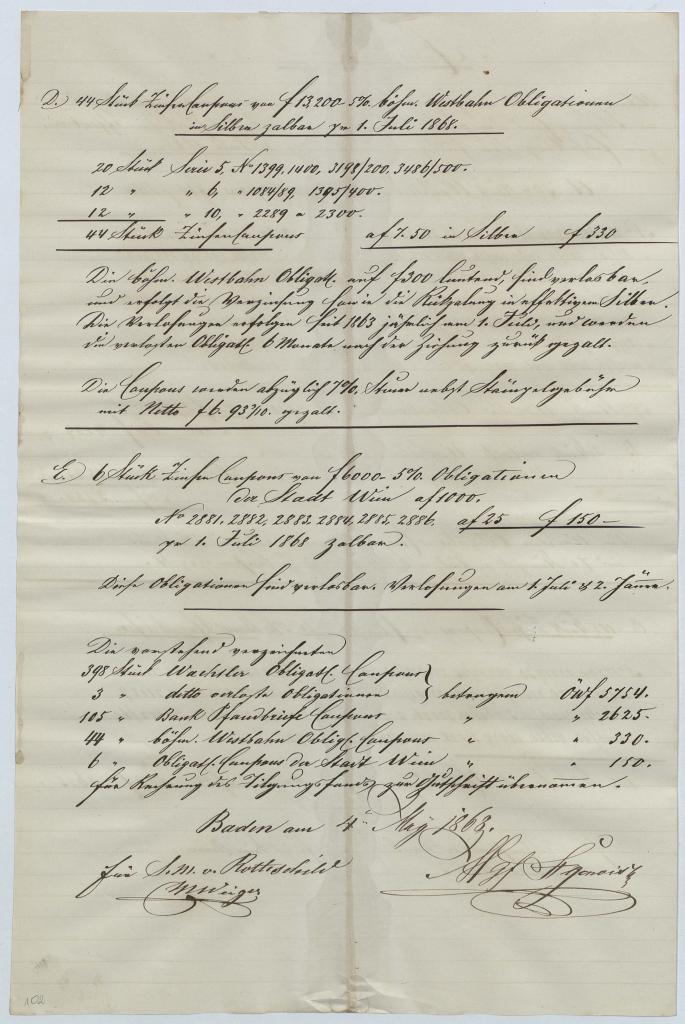 D. 44 Stück Zinsen Coupons von f 13,200 - 5% böhm. Westbahn Obligationen
in Silber zalbar pr 1. Juli 1868.
20 Stück Serie 5, No 1399, 1400, 3198/200. 3486/500.
12 " " 6, " 1084/89, 1395/400.
12 " " 10, " 2289 " 2300.
44 Stück Zinsen Coupons af 7.50 in Silber f 330
Die böhm. Westbahn Obligatt. auf f 300 lautend, sind verlosbar,
und erfolgt die Verzinsung sowie die Rükzalung in effektivem Silber.
Die Verlosungen erfolgen seit 1863 jährlich am 1. Juli, und werden
die verlosten Obligatt. 6 Monate nach der Ziehung zurük gezalt.
Die Coupons werden abzüglich 7% Steuer nebst Stempelgebühr
mit Netto f 6. 93 /10. gezalt.
E. 6 Stück Zinsen Coupons von f 6000 - 5% Obligationen
der Stadt Wien af 1000.
No 2881. 2882, 2883. 2884, 2885, 2886. af 25 f 150 —
pr 1. Juli 1868 zalbar.
Diese Obligationen sind verlosbar. Verlosungen am 1. Juli & 2. Jänner.
Die vorstehend verzeichneten
398 Stück Obligatt. Coupons
3 " detto verloste Obligationen } betragend ÖWf 5754.
105 " Bank Pfandbriefe Coupons " " 2625.
44 " böhm. Westbahn Oblig. Coupons " " 330.
6 " Obligatt. Coupons der Stadt Wien " " 150.
für Rechnung des Tilgungsfonds zur Gutschrift übernommen.
Baden am 4 May 1868.
für S. M. v. Rothschild
102